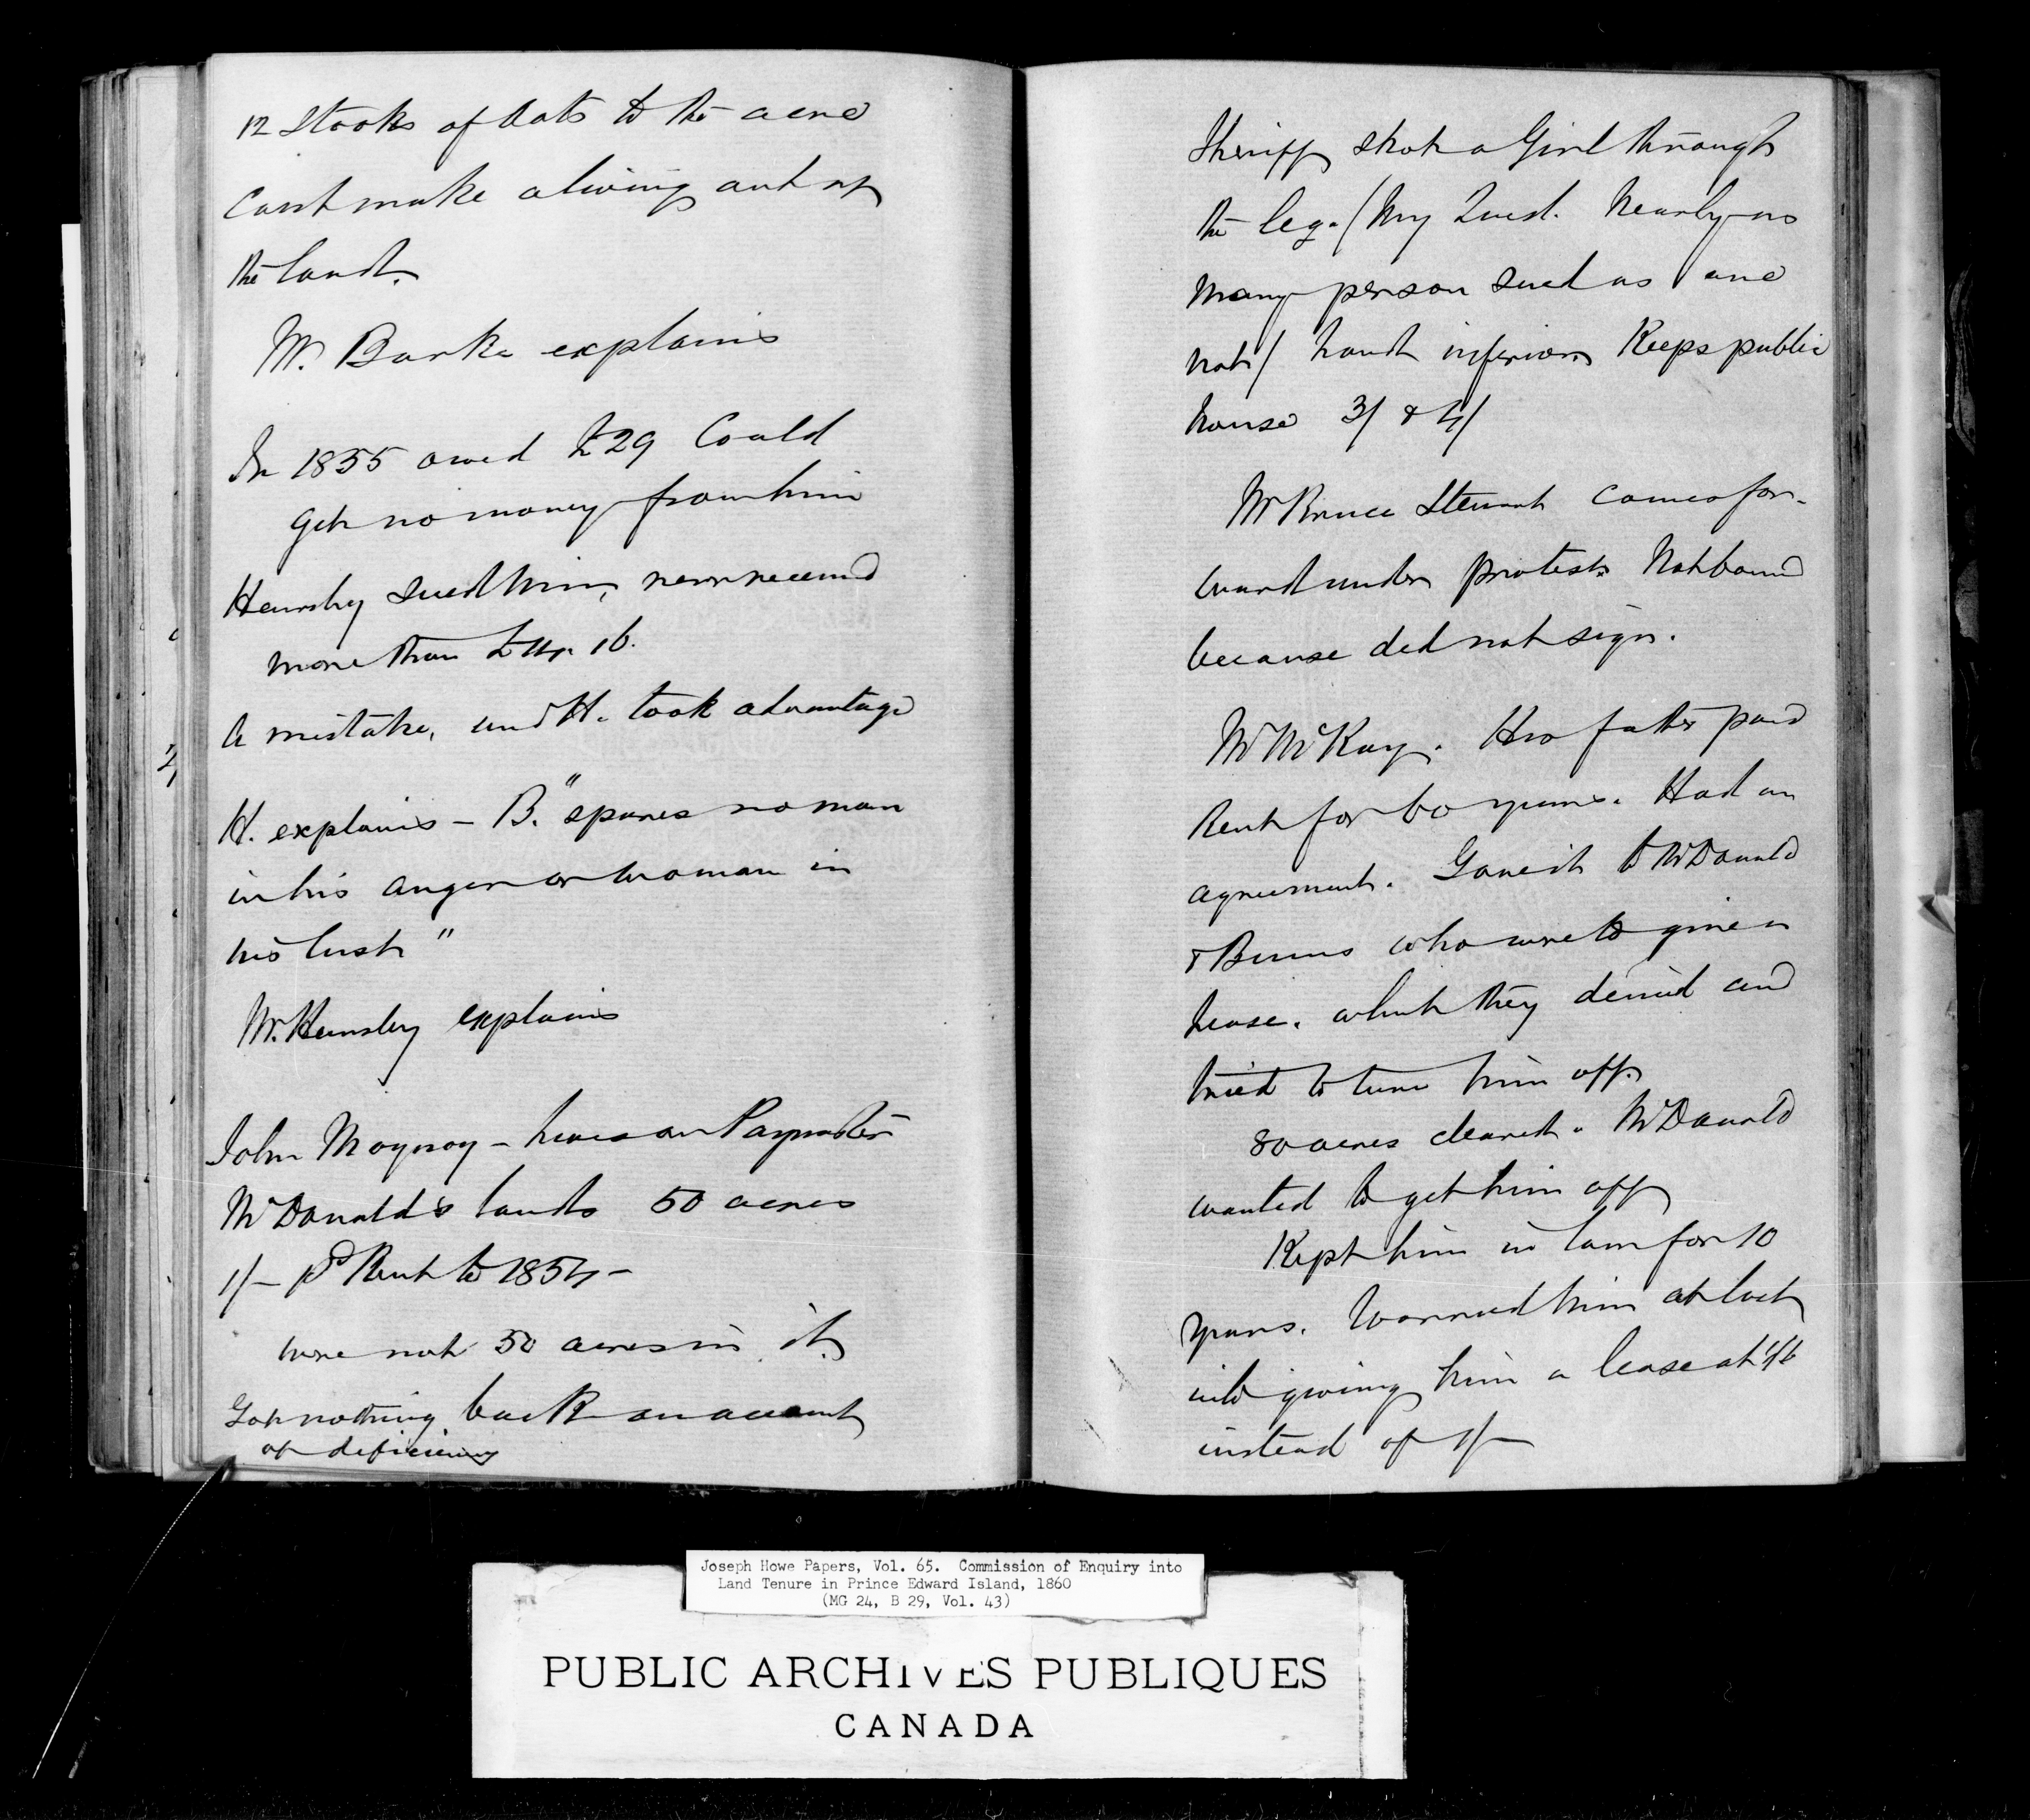 12 Stooks of Oats to the acre
Cant make a living out of
the land.
Mr. Burke explains
In 1855 owed £29 Could
get no money from him
Hensley sued him, never received
more than £ 16.
A mistake, and H. took advantage
H. explains - B. "spares no man
in his anger or woman in
his lust"
Mr. Hensley explains
John - lives on Paymaster
McDonald's lands 50 acres
1/- pd Rent to 1854 -
were not 50 acres in it.
Got nothing back on account
of deficiency
Sheriff shot a Girl through
the leg. / My Quest. Nearly as
many person sued as are
not / Land inferior. Keeps public
house 3/ & 4/
Mr Bruce Stewart comes for-
ward under protest. Not bound
because did not sign.
Mr McKay. His father paid
Rent for 60 years. Had an
agreement. Gave it to McDonald
& Binns who were to give a
lease. which they denied and
tried to turn him off.
80 acres cleared. McDonald
wanted to get him off
Kept him in law for 10
years. Worried him at last
into giving him a lease at 1/6
instead of 1/-
Joseph Howe Papers, Vol. 65. Commission of Enquiry into
Land Tenure in Prince Edward Island, 1860
(MG 24, B 29, Vol. 43)
PUBLIC ARCHIVES PUBLIQUES
CANADA